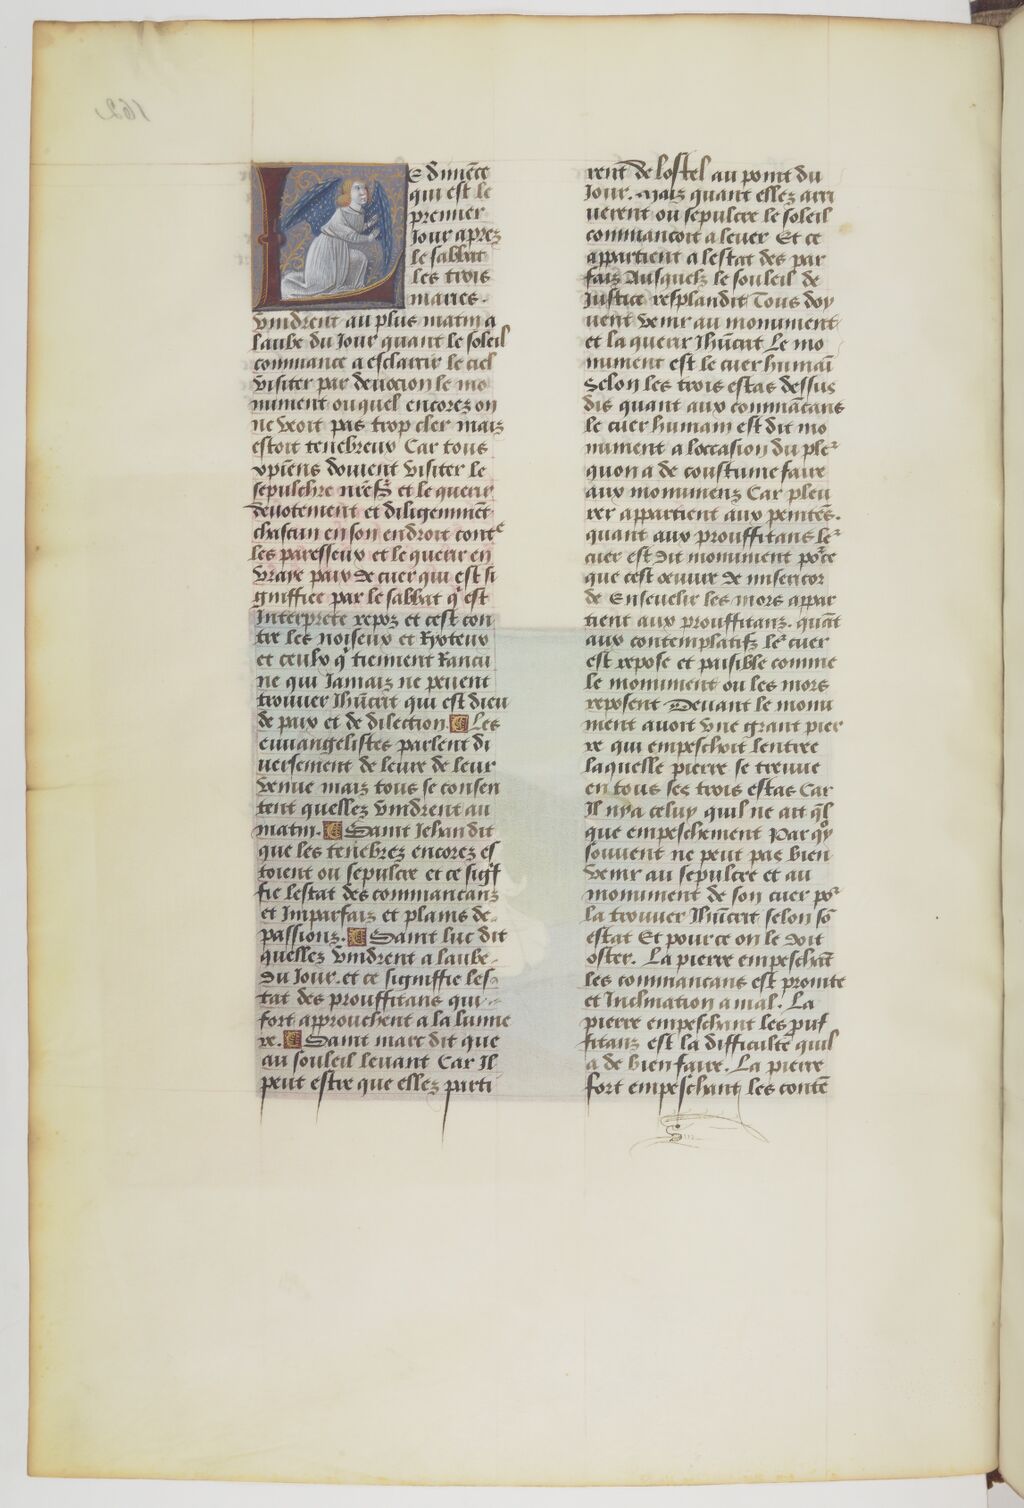 Le dimēce
qui est le
premier
Jour aprez
le sabbat
les trois
maries.
vindrent au plus matin a
laube du Jour quant le soleil
commance a esclarcir le ciel
visiter par deuocion le mo
nument ouquel encorez on
ne veoit pas trop cler mais
estoit tenebreux Car tous
xpiens doiuent visiter le
sepulchre et le querir
deuotement et diligemment
chascun en son endroit contre
les paresseux et le querir en
vraye paix de cuer qui est si
gniffiee par le sabbat q̄ est
Interprete repoz et cest con
tre les noiseux et Ryoteux
et ceulx q̄ tiennent Rancu
ne qui Jamaiz ne peuent
trouuer Ihūcrit qui est dieu
de paix et de dilection. Les
euuangelistes parlent di
uersement de leure de leur
venue mais tous se consen
tent quellez vindrent au
matin. Saint Jehan dit
que les tenebrez encorez es
toient ou sepulcre et ce sigī
fie lestat des commancans
et Imparfais et plains de
passions. Saint luc dit
quellez vindrent a laube
du Jour. et ce signiffie les
tat des prouffitans qui
fort approuchent a la lumie
re. Saint marc dit que
au souleil leuant Car Il
peut estre que ellez parti
rent de lostel au point du
Jour. Maiz quant ellez arri
uerent ou sepulcre le soleil
commancoit a leuer Et ce
appartient a lestat des par
fais Ausquelz le souleil de
Justice resplandit Tous doy
uent venir au monument
et la querir Ihūcrit Le mo
nument est le cuer humaī
Selon les trois estas dessus
dis quant aux commācans
le cuer humain est dit mo
nument a loccasion du pler
quon a de coustume faire
aux monumens Car pleu
rer appartient aux penitēs.
quant aux prouffitans le
cuer est dit monument poᵣce
que cest oeuure de misericor
de Enseuelir les mors appar
tient aux prouffitans. quāt
aux contemplatifz le cuer
est repose et paisible comme
le monument ou les mors
reposent Deuant le monu
ment auoit vne grant pier
re qui empeschoit lentree
laquelle pierre se treuue
en tous ses trois estas Car
Il nya celuy quil ne ait q̄l
que empeschement Par qͦy
souuent ne peut pas bien
venir au sepulcre et au
monument de son cuer poʳ
la trouuer Ihūcrit selon sō
estat Et pour ce on le doit
oster. La pierre empeschāt
les commancans est
et Inclination a mal. La
pierre empeschant les
fitans est la difficulte quil
a de bien faire. La pierre
fort empeschant les contē
162